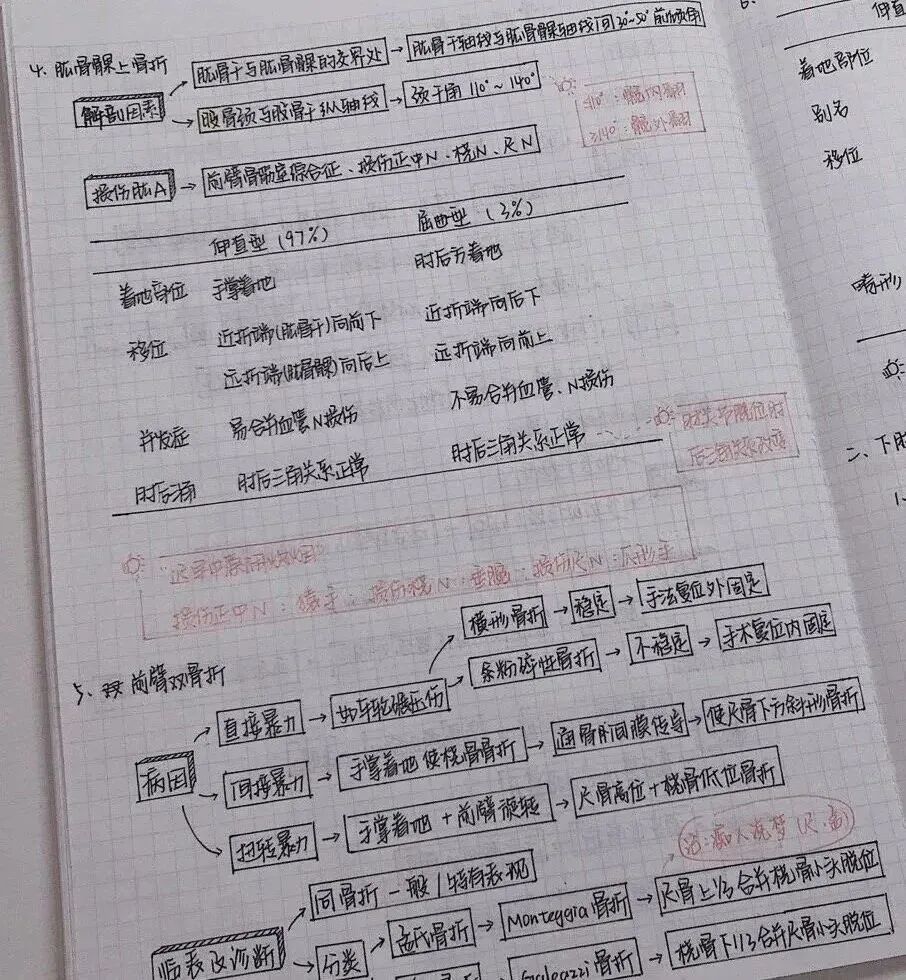 4、肱骨髁上骨折
解剖因素 → 肱骨干与肱骨髁的交界处 → 肱骨干轴线与肱骨髁轴线间30°~50°前倾角
股骨颈与股骨干纵轴线 → 颈干角 110°~140°
<110°:髋内翻
>140°:髋外翻
损伤肱A → 前臂骨筋膜室综合征、损伤正中N、桡N、尺N
伸直型(97%) 屈曲型(3%)
着地部位 手掌着地 肘后方着地
移位 近折端(肱骨干)向前下 近折端向后下
远折端(肱骨髁)向后上 远折端向前上
并发症 易合并血管N损伤 不易合并血管、N损伤
肘后三角 肘后三角关系正常 肘后三角关系正常
肘关节脱位时
后三角关系改变
损伤正中N:猿手;损伤桡N:垂腕;损伤尺N:爪形手
5、双 前臂双骨折
病因 → 直接暴力 → 如车轮碾压伤
横形骨折 → 稳定 → 手法复位外固定
粉碎性骨折 → 不稳定 → 手术复位内固定
间接暴力 → 手掌着地使桡骨骨折 → 通骨间膜传导 → 使尺骨下方斜形骨折
扭转暴力 → 手掌着地+前臂旋转 → 尺骨高位+桡骨低位骨折
临表及诊断 → 同骨折一般/特有表现
分类 → 孟氏骨折 → Monteggia骨折 → 尺骨上1/3合并桡骨小头脱位
Galeazzi骨折 → 桡骨下1/3合并尺骨小头脱位
伸直
着地部位
别名
移位
畸形
二、下肢